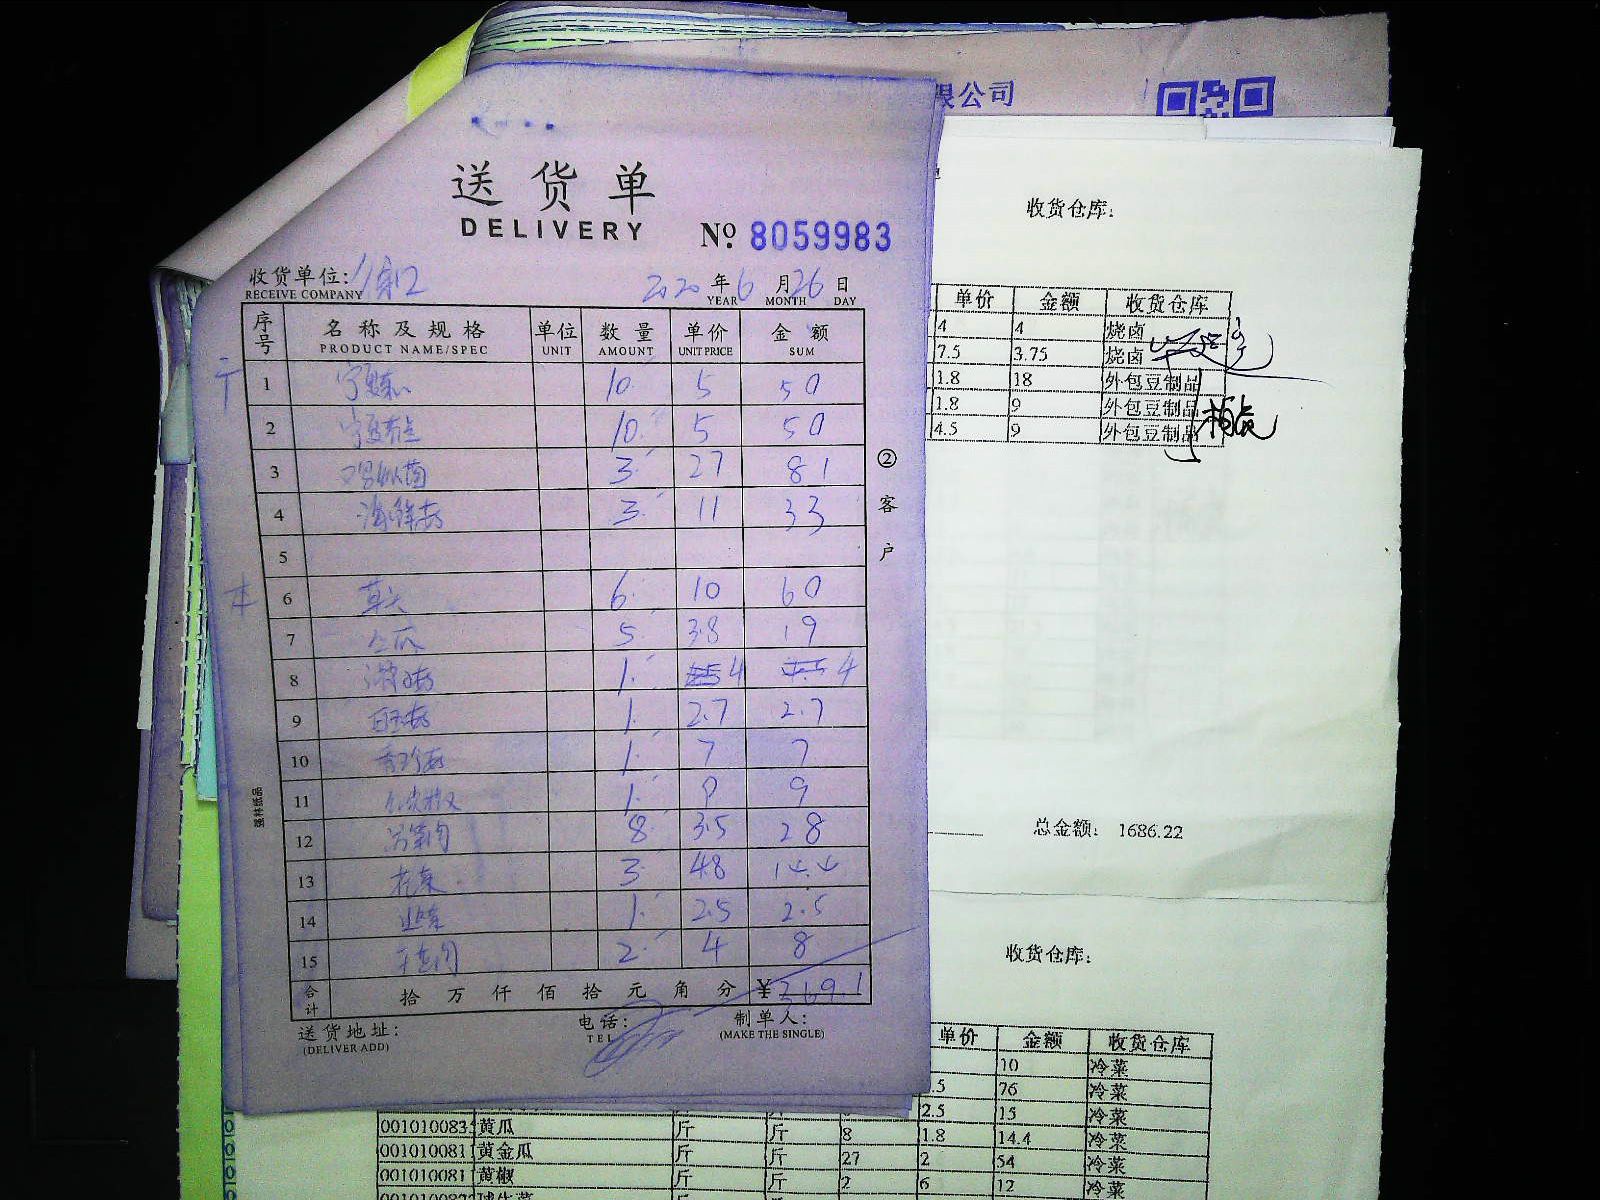 限公司
送货单
DELIVERY
№ 8059983
收货单位:
RECEIVE COMPANY
2020 年 6 月 26 日
YEAR MONTH DAY
序号 名称及规格 单位 数量 单价 金额
PRODUCT NAME/SPEC UNIT AMOUNT UNIT PRICE SUM
1 10 5 50
2 10 5 50
3 3 27 81
4 海鲜菇 3 11 33
5
6 草头 6 10 60
7 5 3.8 19
8 1 4 4
9 白玉菇 1 2.7 2.7
10 1 7 7
11 1 9 9
12 8 3.5 28
13 花菜 3 4.8 14.4
14 韭菜 1 2.5 2.5
15 2 4 8
合计 拾 万 仟 佰 拾 元 角 分 ¥
送货地址:
(DELIVER ADD)
电话:
TEL
制单人:
(MAKE THE SINGLE)
②客户
收货仓库:
单价 金额 收货仓库
4 4 烧卤
7.5 3.75 烧卤
1.8 18 外包豆制品
1.8 9 外包豆制品
4.5 9 外包豆制品
总金额: 1686.22
收货仓库:
单价 金额 收货仓库
10 冷菜
.5 76 冷菜
2.5 15 冷菜
001010083 黄瓜 斤 斤 8 1.8 14.4 冷菜
001010081 黄金瓜 斤 斤 27 2 54 冷菜
001010081 黄椒 斤 斤 2 6 12 冷菜